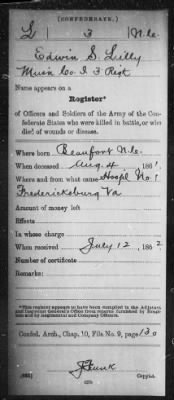 (CONFEDERATE.)
L 3 N.C.
Edwin S. Lilly
Co. I 3 Regt
Name appears on a
Register*
of Officers and Soldiers of the Army of the Confederate States who were killed in battle, or who
died of wounds or disease.
Where born Beaufort N.C.
When deceased Aug 4, 186
Where and from what cause Hospl No 1
Fredericksburg Va
Amount of money left
Effects
In whose charge
When received July 12, 1862
Number of certificate
Remarks:
*This register appears to have been compiled in the Adjutant
and Inspector General's Office from returns furnished by Hospitals and by Regimental and Company Officers.
Confed. Arch., Chap. 10, File No. 9, page 130
J Funk
Copyist.